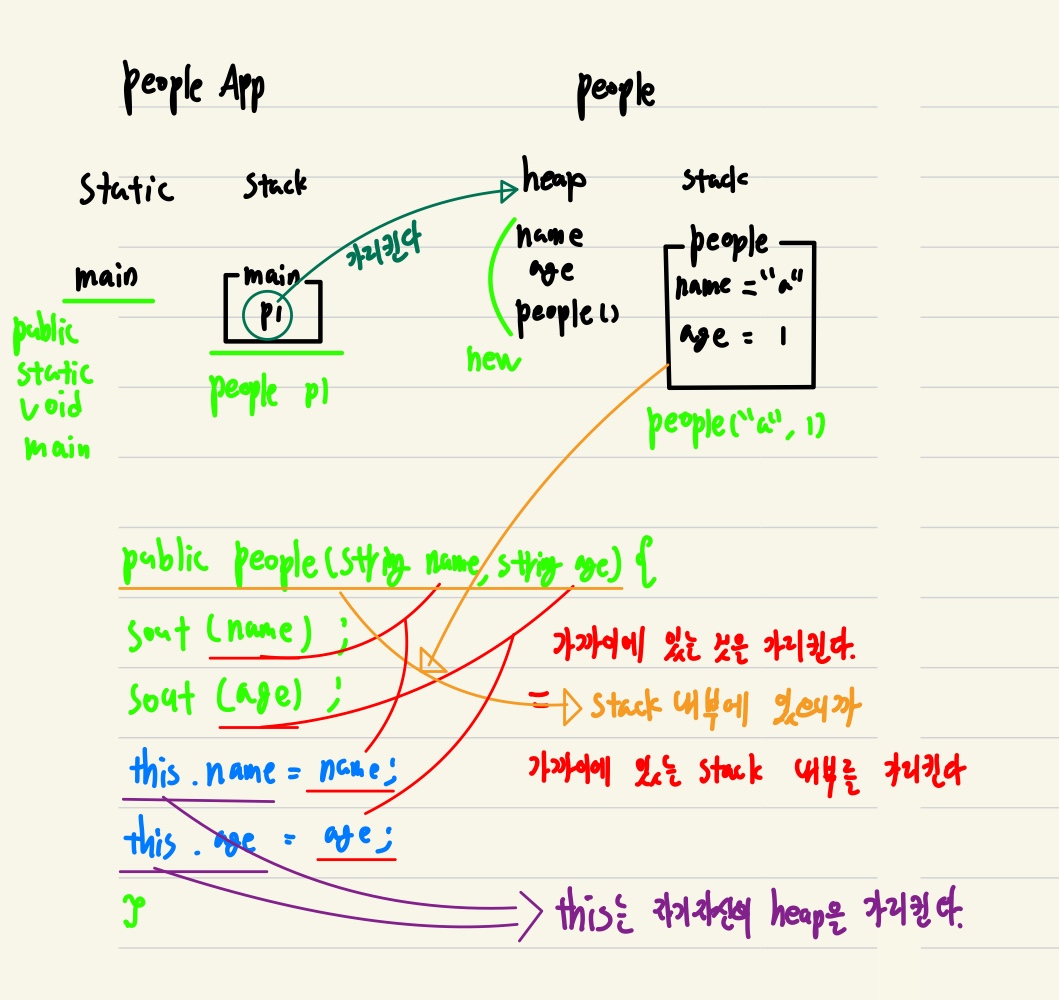 people App
people
static
stack
heap
stack
가리킨다
name
age
people()
new
main
main
p1
people p1
public
static
void
main
people
name = "a"
age = 1
people("a", 1)
public people(String name, string age) {
sout (name) ;
sout (age) ;
this.name = name;
this.age = age;
}
가까이에 있는 것은 가리킨다.
=
stack 내부에 있으니까
가까이에 있는 stack 내부를 가리킨다
this는 자기자신의 heap을 가리킨다.